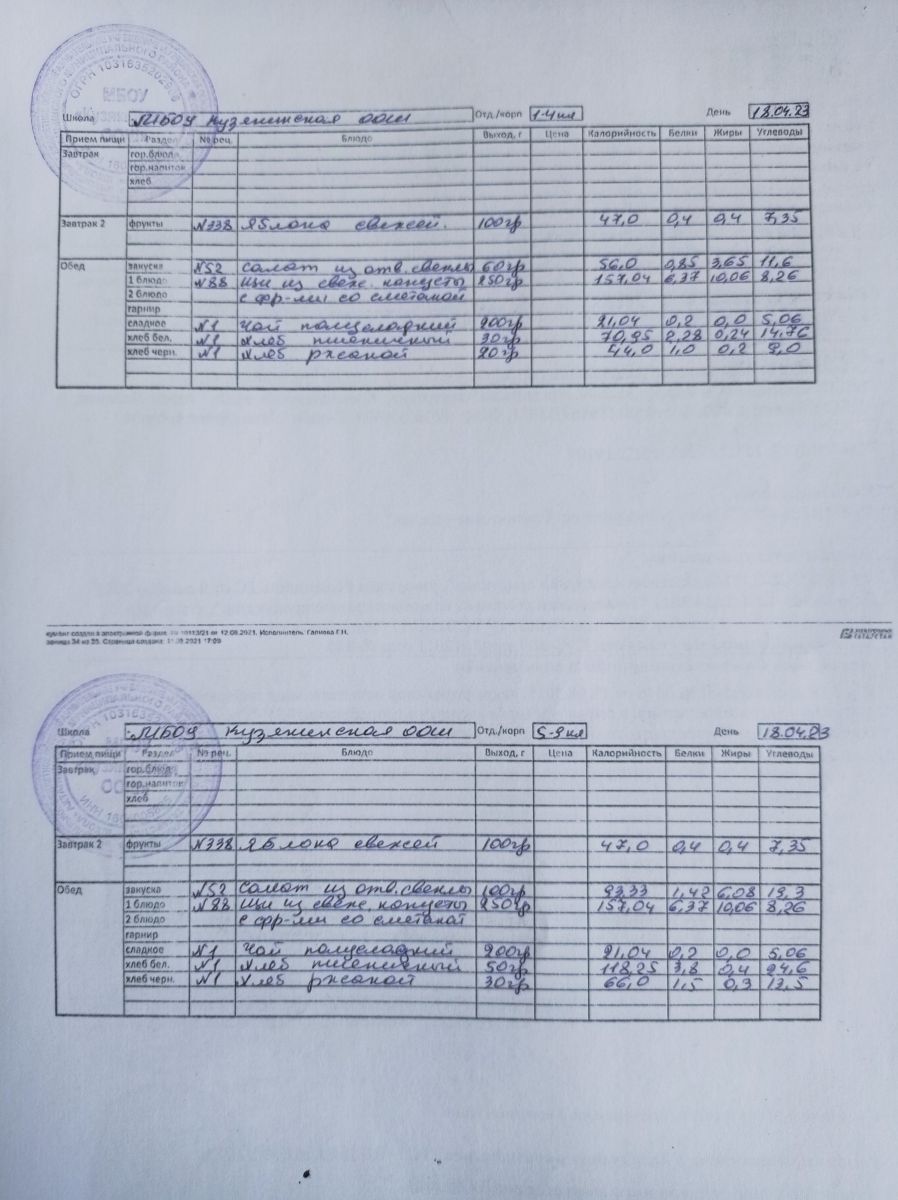 МБОУ
ОГРН
Школа МБОУ Кузякинская ООШ Отд./корп 1-4 кл День 18.04.23
Прием пищи Раздел № рец. Блюдо Выход, г Цена Калорийность Белки Жиры Углеводы
Завтрак гор.блюдо
гор.напиток
хлеб
Завтрак 2 фрукты №338 Яблоко свежей. 100гр 47,0 0,4 0,4 7,35
Обед закуска №52 Салат из отв. свеклы 60гр 56,0 0,85 3,65 11,6
1 блюдо №88 Щи из свеж. капусты 250гр 157,04 6,37 10,06 8,26
2 блюдо с фр-ми со сметаной
гарнир
сладкое №1 Чай полусладкий 200гр 21,04 0,2 0,0 5,06
хлеб бел. №1 Хлеб пшеничный 30гр 70,95 2,28 0,24 14,76
хлеб черн. №1 Хлеб ржаной 20гр 44,0 1,0 0,2 9,0
12.08.2021. Исполнитель: Галиова Г.Н.
Страница создана: 2021 17:09
Школа МБОУ Кузякинская ООШ Отд./корп 5-9 кл День 18.04.23
Прием пищи Раздел № рец. Блюдо Выход, г Цена Калорийность Белки Жиры Углеводы
Завтрак гор.блюдо
гор.напиток
хлеб
Завтрак 2 фрукты №338 Яблоко свежей 100гр 47,0 0,4 0,4 7,35
Обед закуска №52 Салат из отв. свеклы 100гр 93,33 1,42 6,08 19,3
1 блюдо №88 Щи из свеж. капусты 250гр 157,04 6,37 10,06 8,26
2 блюдо с фр-ми со сметаной
гарнир
сладкое №1 Чай полусладкий 200гр 21,04 0,2 0,0 5,06
хлеб бел. №1 Хлеб пшеничный 50гр 118,25 3,8 0,4 24,6
хлеб черн. №1 Хлеб ржаной 30гр 66,0 1,5 0,3 13,5